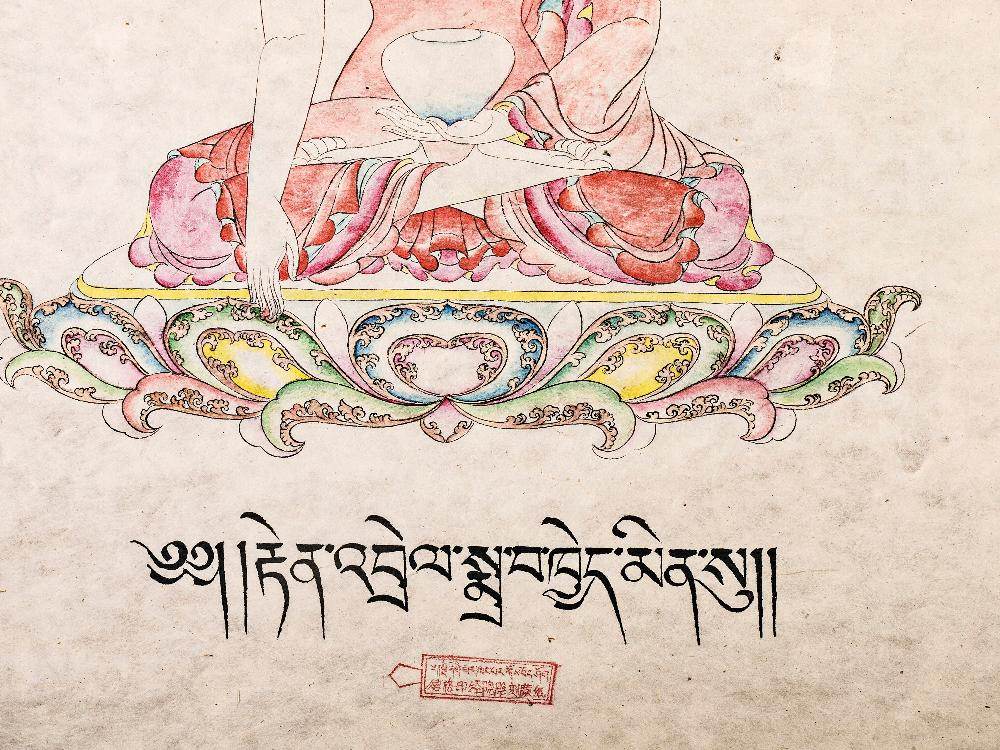 ༄༅། །རྟེན་འབྲེལ་སྨྲ་བ་ཁྱེད་མིན་སུ།།